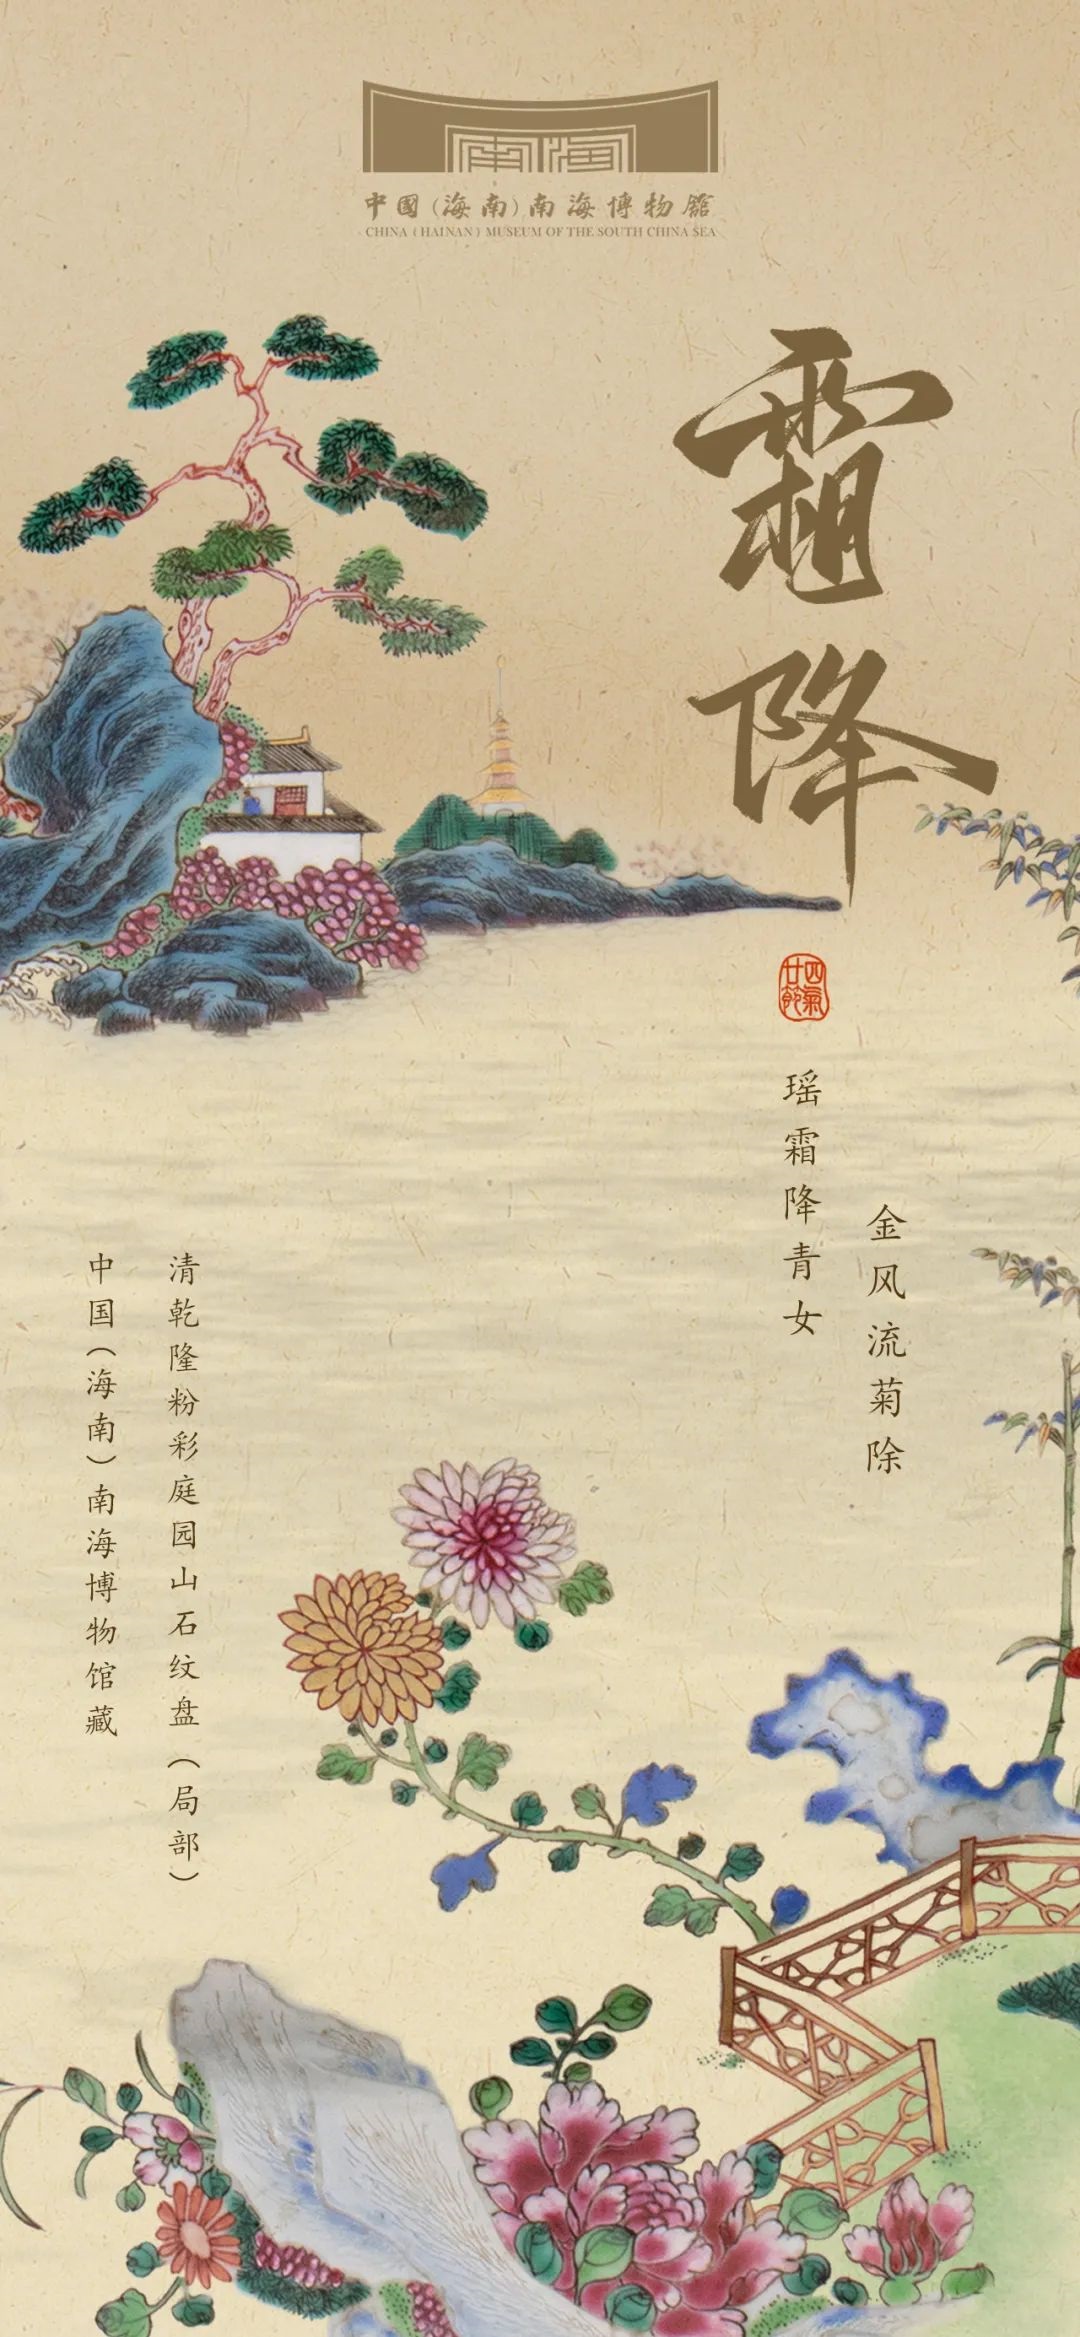 南海
中國（海南）南海博物館
CHINA ( HAINAN ) MUSEUM OF THE SOUTH CHINA SEA
霜降
四氣
廿節
金风流菊除
瑶霜降青女
清乾隆粉彩庭园山石纹盘（局部）
中国（海南）南海博物馆藏